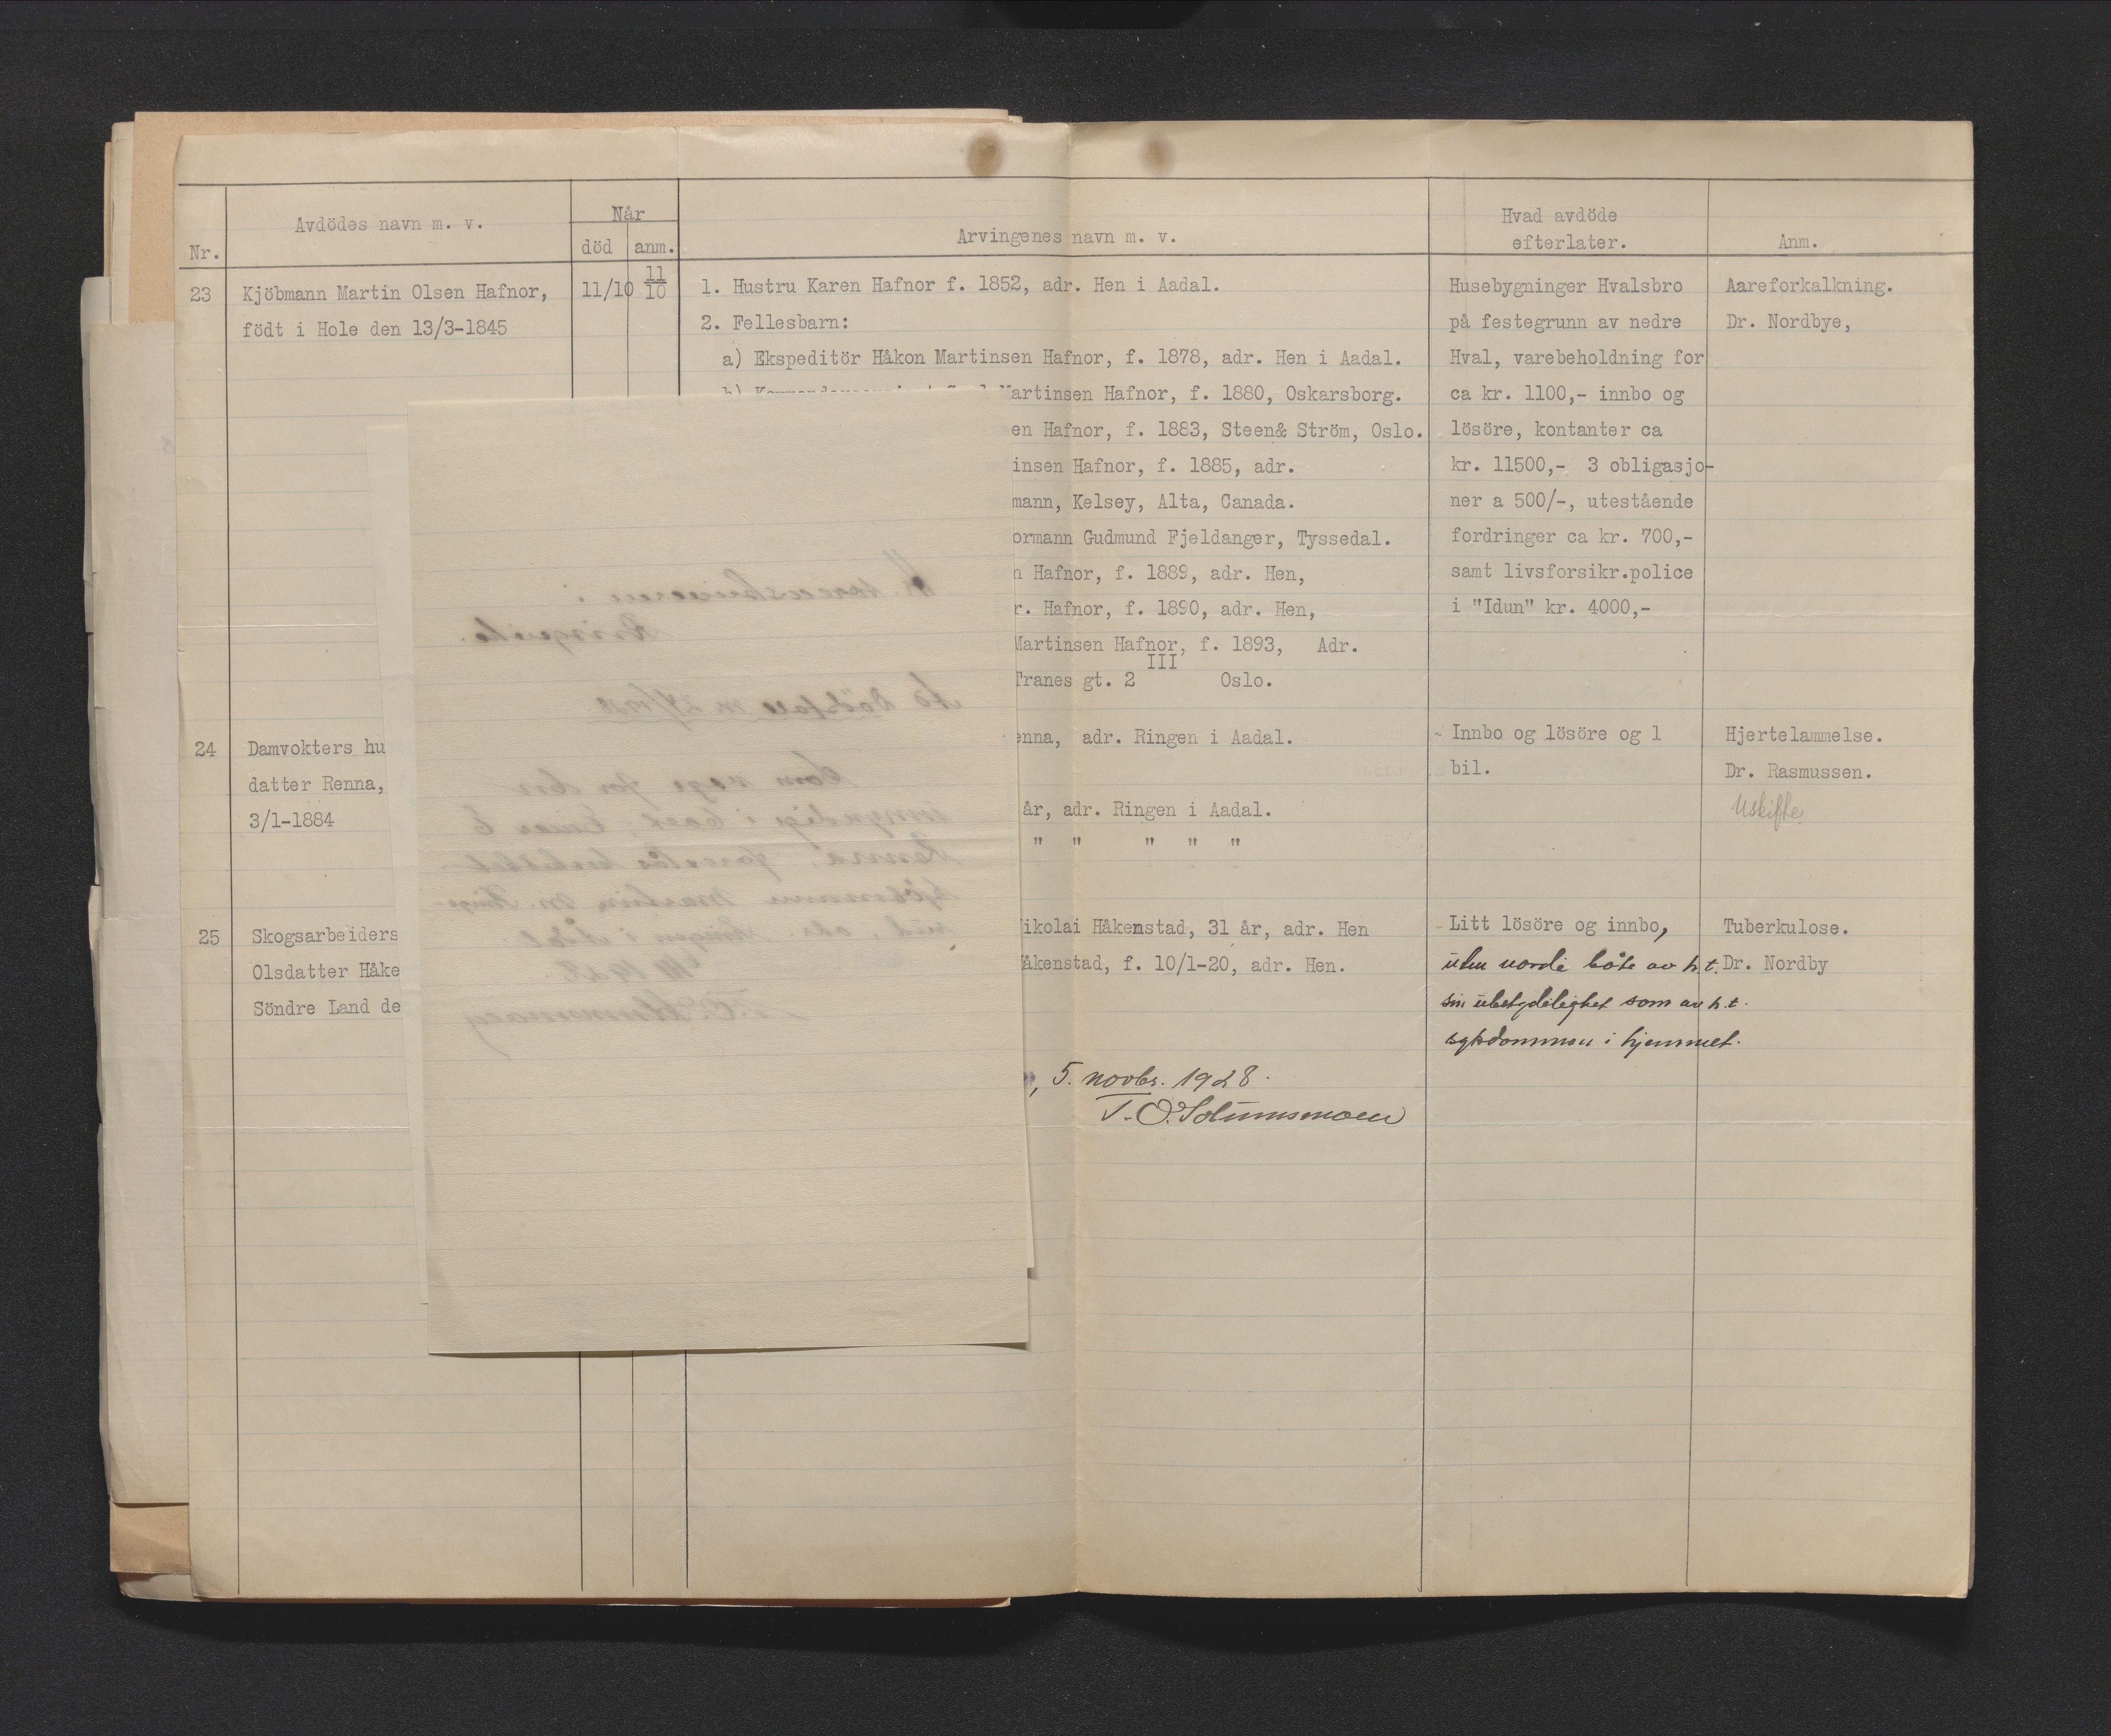 Nr.
Avdödes navn m. v.
Når
död
anm.
Arvingenes navn m. v.
Hvad avdöde
efterlater.
Anm.
23
Kjöbmann Martin Olsen Hafnor,
födt i Hole den 13/3-1845
11/10
11
10
1. Hustru Karen Hafnor f. 1852, adr. Hen i Aadal.
2. Fellesbarn:
a) Ekspeditör Håkon Martinsen Hafnor, f. 1878, adr. Hen i Aadal.
artinsen Hafnor, f. 1880, Oskarsborg.
en Hafnor, f. 1883, Steen& Ström, Oslo.
insen Hafnor, f. 1885, adr.
mann, Kelsey, Alta, Canada.
ormann Gudmund Fjeldanger, Tyssedal.
n Hafnor, f. 1889, adr. Hen,
r. Hafnor, f. 1890, adr. Hen,
Martinsen Hafnor, f. 1893, Adr.
III
Tranes gt. 2 Oslo.
Husebygninger Hvalsbro
på festegrunn av nedre
Hval, varebeholdning for
ca kr. 1100,- innbo og
lösöre, kontanter ca
kr. 11500,- 3 obligasjo-
ner a 500/-, utestående
fordringer ca kr. 700,-
samt livsforsikr.police
i "Idun" kr. 4000,-
Aareforkalkning.
Dr. Nordbye,
24
Damvokters hu
datter Renna,
3/1-1884
enna, adr. Ringen i Aadal.
år, adr. Ringen i Aadal.
" " " " "
Innbo og lösöre og 1
bil.
Hjertelammelse.
Dr. Rasmussen.
Uskifte
25
Skogsarbeiders
Olsdatter Håke
Söndre Land de
ikolai Håkenstad, 31 år, adr. Hen
åkenstad, f. 10/1-20, adr. Hen.
Litt lösöre og innbo,
uten verdi både av h.t.
sin ubetydelighet som av h.t.
sykdommen i hjemmet.
Tuberkulose.
Dr. Nordby
, 5. novbr. 1928.
T. O. Solumsmoen